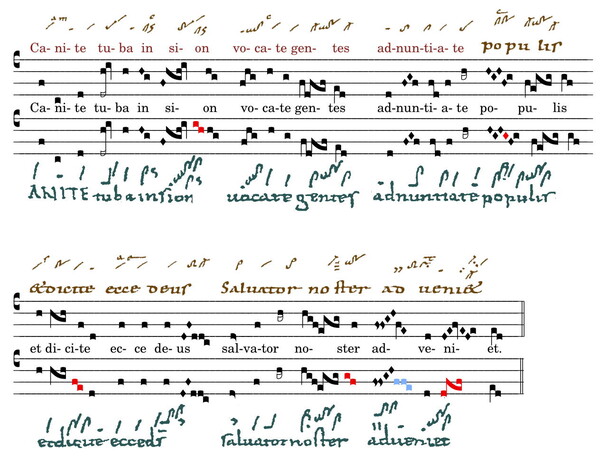 Ca- ni- te tu- ba in si- on vo- ca- te gen- tes ad-nun-ti-a- te populis
Ca- ni- te tu- ba in si- on vo- ca-te gen- tes ad-nun-ti- a- te po- pu- lis
ANITE tuba insion uocate gentes adnuntiate populis
et dicite ecce deus Salvator noster ad veniet
et di-ci-te ec- ce de-us sal-va-tor no- ster ad- ve- ni- et.
et dicite ecce ds saluator noster adueniet